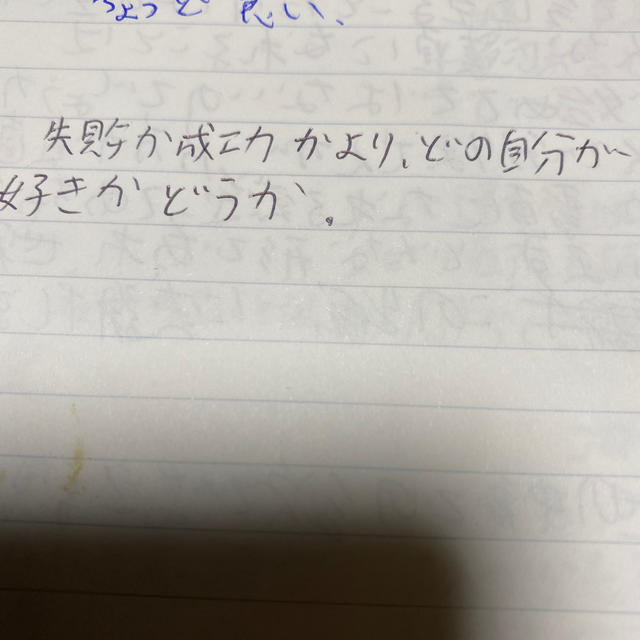 ちょうど良い、
失敗か成功かより、どの自分が
好きかどうか。